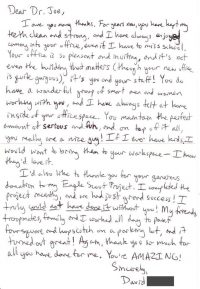 Dear Dr. Joe,
I owe you many thanks. For years now, you have kept my
teeth clean and strong, and I have always enjoyed
coming into your office, even if I have to miss school.
Your office is so pleasant and inviting, and it's not
even the building that matters (though your new office
is quite gorgeous), it's you and your staff! You do
have a wonderful group of smart men and women
working with you, and I have always felt at home
inside of your office space. You maintain the perfect
amount of serious and fun, and on top of it all,
you really are a nice guy! If I ever have kids, I
would want to bring them to your workspace - I know
they'd love it.
I'd also like to thank you for your generous
donation to my Eagle Scout Project. I completed the
project recently, and we had just grand success! I
truly could not have done it without you! My friends,
troopmates, family and I worked all day to paint
foursquare and hopscotch on a parking lot, and it
turned out great! Again, thank you so much for
all you have done for me. You're AMAZING!
Sincerely,
David